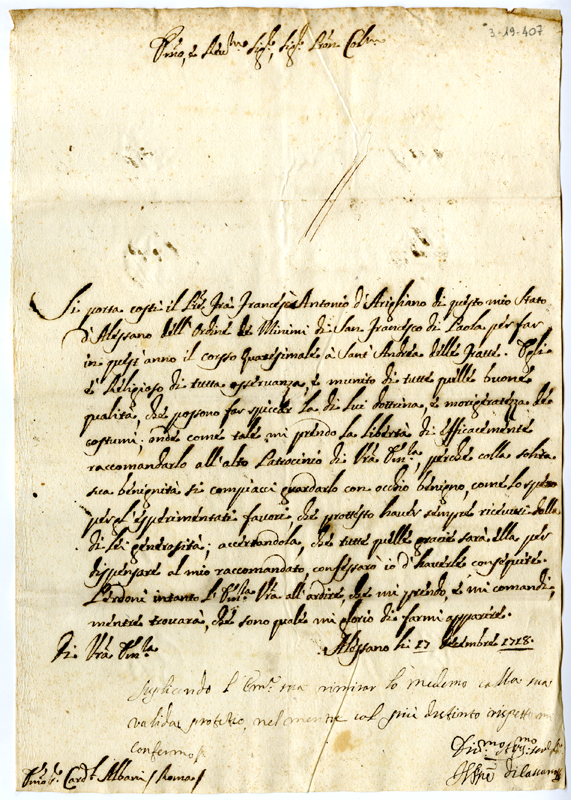 3-19-407
Em̃o, e Reu:mo Sig:r, Sig:r Pron Col:mo
Si porta costì il P̃re Frà Francesc'Antonio d'Arigliano di questo mio Stato
d'Alessano dell'Ordine de Minimi di San Francesco di Paola per far
in quest'anno il corso Quaresimale à Sant'Andrea delle Fratte. Egli
è Religioso di tutta osservanza, e munito di tutte quelle buone
qualità, che possono far spiccar la di lui dottrina, e morigeratezza de
costumi; onde come tale mi prendo la libertà di efficacemente
raccomandarlo all'alto Patrocinio di Vr̃a Em̃:za, perche colla solita
sua benignità si compiacci guardarlo con occhio benigno, come lo spero
per gl'esperimentati favori, che protesto hauer sempre riceuuti dalla
di lei generosità; accertandola, che tutte quelle grazie sarà ella per
dispensare al mio raccomandato, confessarò io d'hauerle conseguite.
Perdoni intanto l'Em̃:za Vr̃a all'ardire, che mi prendo, e mi comandi,
mentre trouarà, che sono quale mi glorio di farmi apparire.
Di Vr̃a Em̃:za
Alessano li 17 Decembre 1718.
Suplicando l'Em:za sua rimirar lo medemo colla sua
valida protetio, nel mentre col più distinto rispetto mi
confermo
Em̃o S:r Card:l Albani / Roma /
Diu:mo